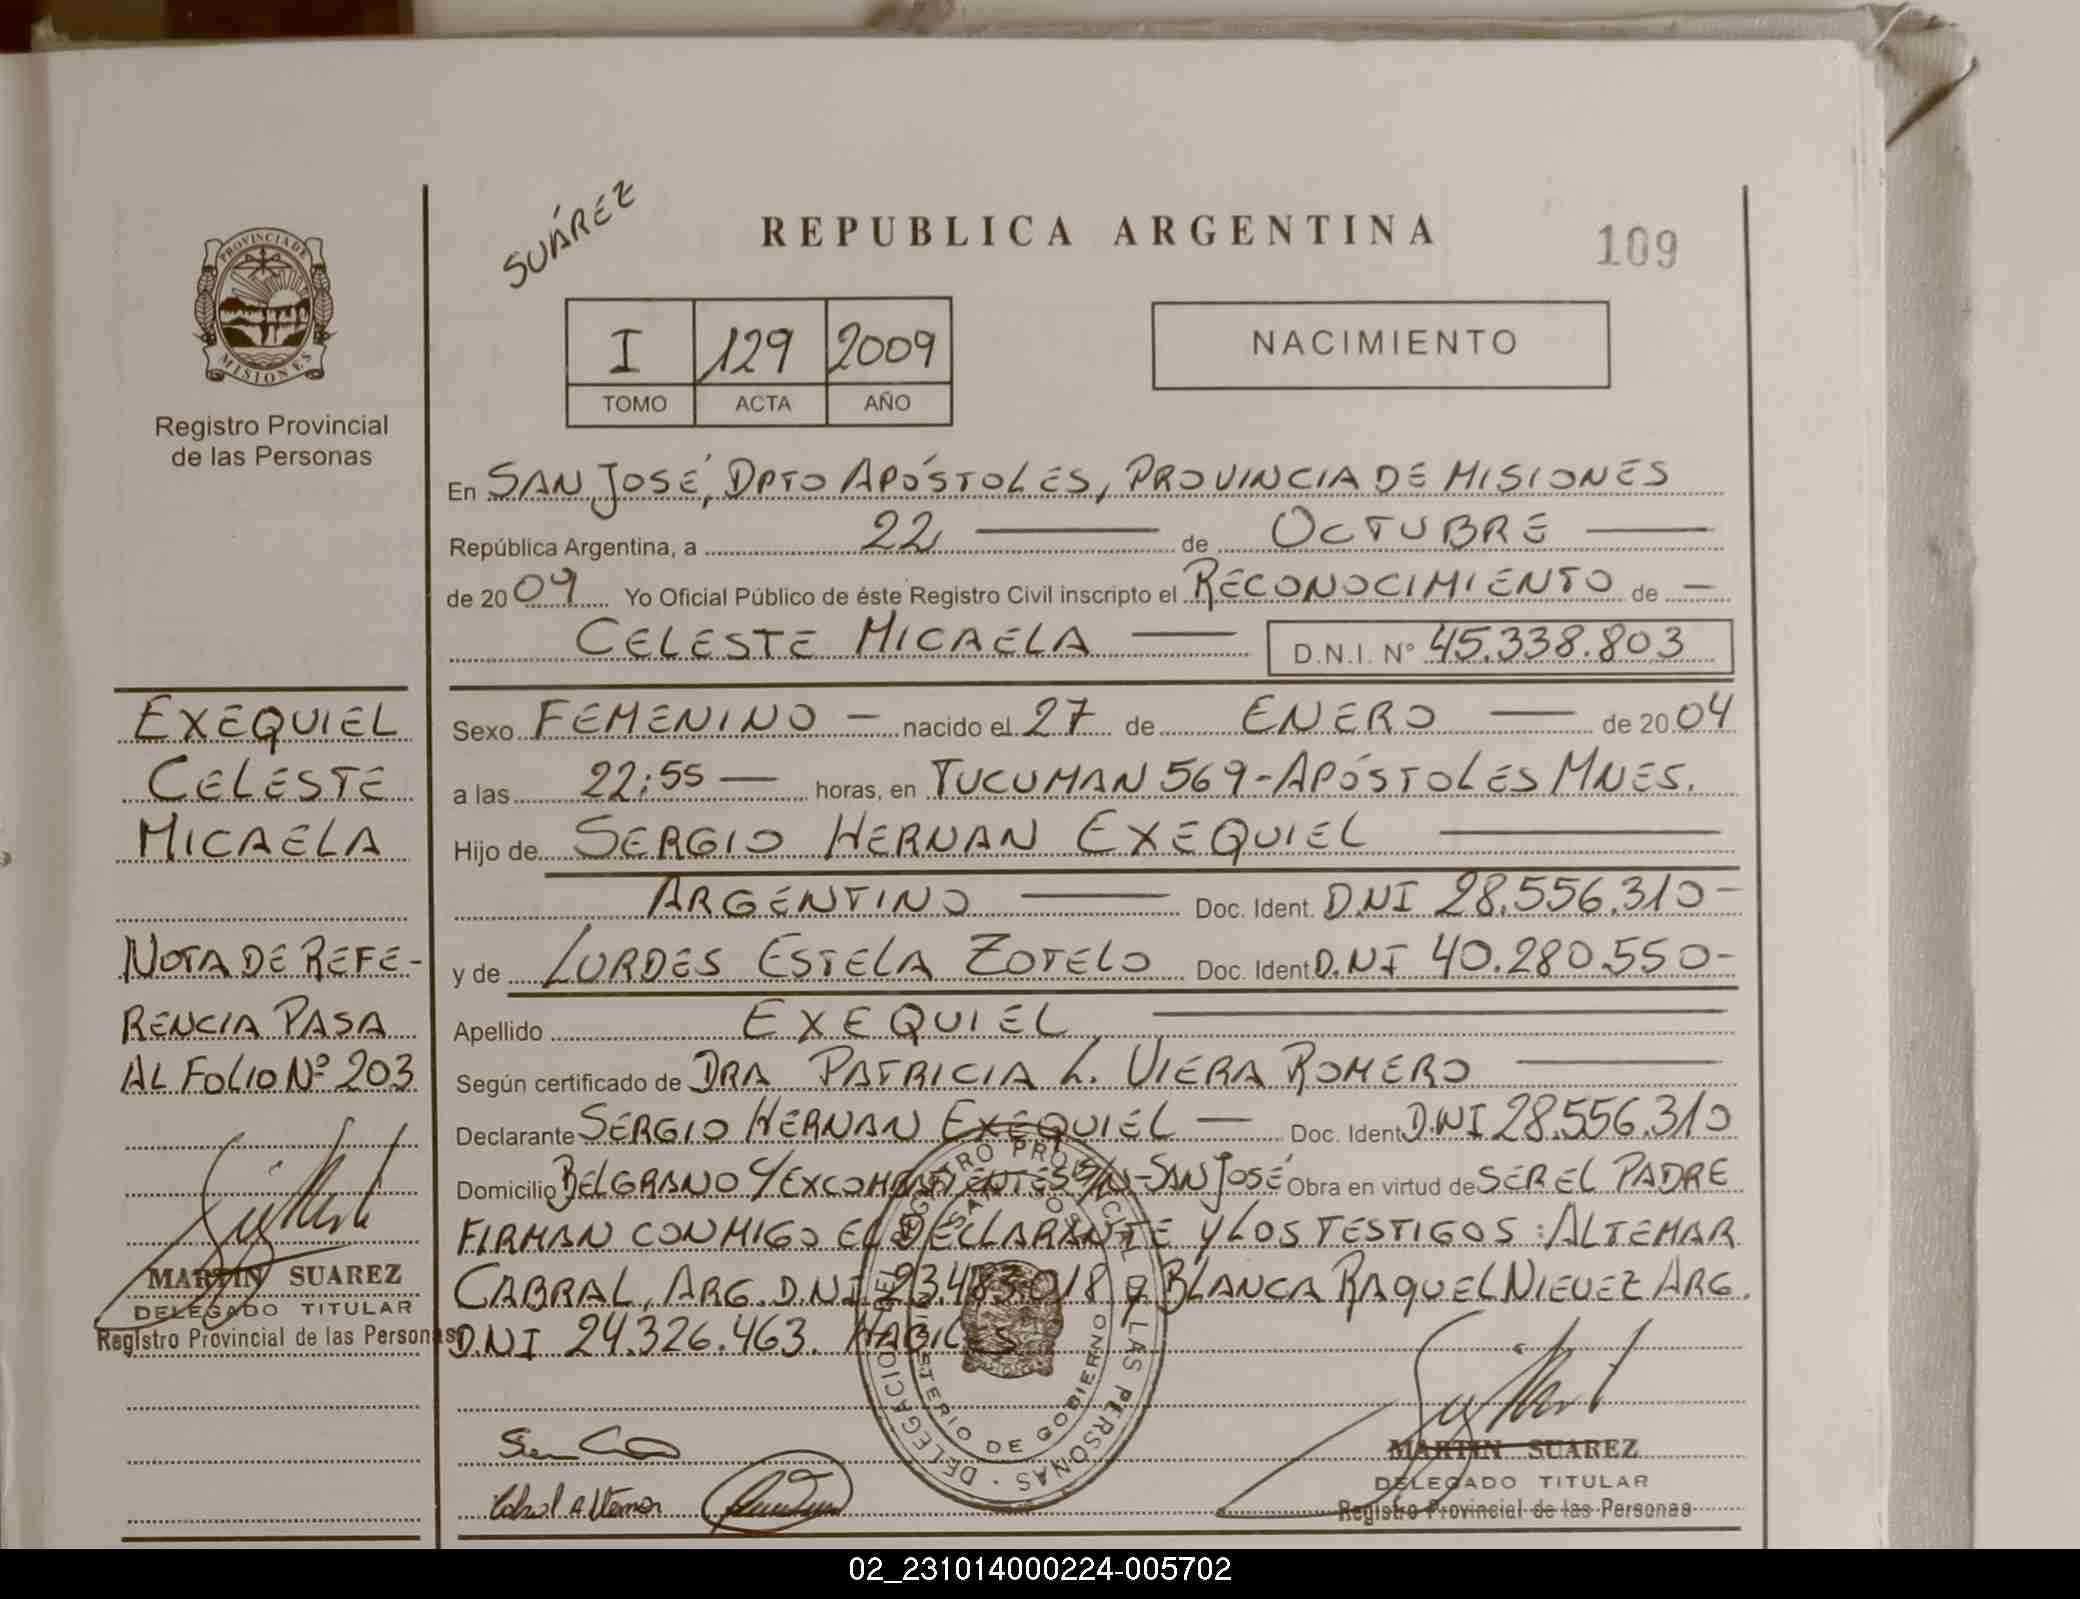 SUÁREZ
REPUBLICA ARGENTINA
109
PROVINCIA DE
MISIONES
Registro Provincial
de las Personas
I 129 2009
TOMO ACTA AÑO
NACIMIENTO
En SAN JOSÉ, DPTO APÓSTOLES, PROVINCIA DE MISIONES
República Argentina, a 22 — de OCTUBRE —
de 2009 Yo Oficial Público de éste Registro Civil inscripto el RECONOCIMIENTO de —
CELESTE MICAELA — D.N.I. N° 45.338.803
Sexo FEMENINO — nacido el 27 de ENERO — de 2004
a las 22:55 — horas, en TUCUMAN 569 - APÓSTOLES MNES.
Hijo de SERGIO HERNAN EXEQUIEL —
ARGENTINO — Doc. Ident. D.NI 28.556.310 -
y de LURDES ESTELA ZOTELO Doc. Ident D.NI 40.280.550 -
Apellido EXEQUIEL —
Según certificado de DRA PATRICIA L. VIERA ROMERO —
Declarante SERGIO HERNAN EXEQUIEL — Doc. Ident D.NI 28.556.310
Domicilio BELGRANO Y EXCOMBATIENTES S/N - SAN JOSÉ Obra en virtud de SER EL PADRE
FIRMAN CONMIGO EL DECLARANTE Y LOS TESTIGOS: ALTEMAR
CABRAL, ARG. D.NI 23.483.018 y BLANCA RAQUEL NIEVEZ ARG.
D.NI 24.326.463. HABILES
EXEQUIEL
CELESTE
MICAELA
NOTA DE REFE-
RENCIA PASA
AL FOLIO Nº 203
MARTIN SUAREZ
DELEGADO TITULAR
Registro Provincial de las Personas
Cabral Altemar
DELEGACION DEL REGISTRO PROVINCIAL DE LAS PERSONAS
SAN JOSE
MINISTERIO DE GOBIERNO
MARTIN SUAREZ
DELEGADO TITULAR
Registro Provincial de las Personas
02_231014000224-005702